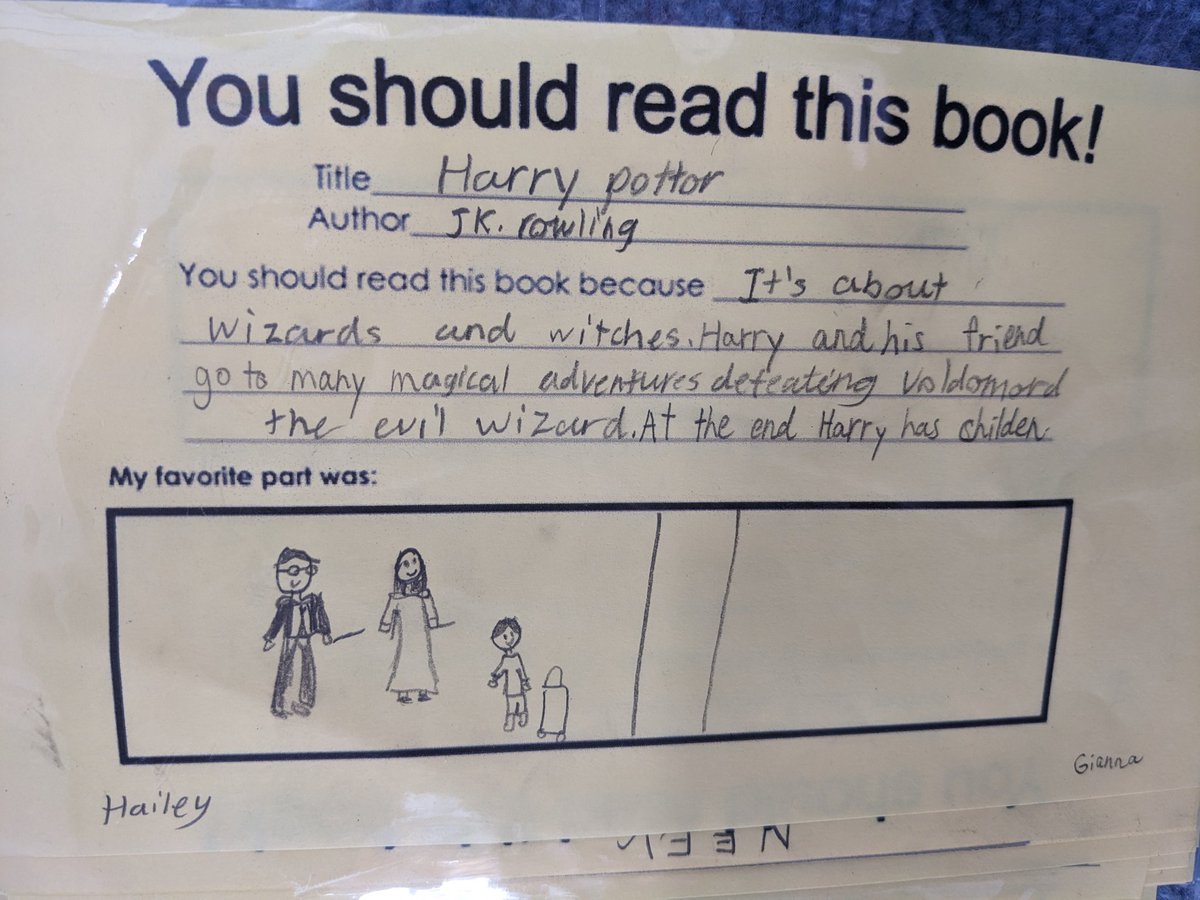 You should read this book!
Title Harry pottor
Author JK. rowling
You should read this book because It's about
wizards and witches. Harry and his friend
go to many magical adventures defeating Voldomord
the evil wizard. At the end Harry has childen.
My favorite part was:
Gianna
Hailey